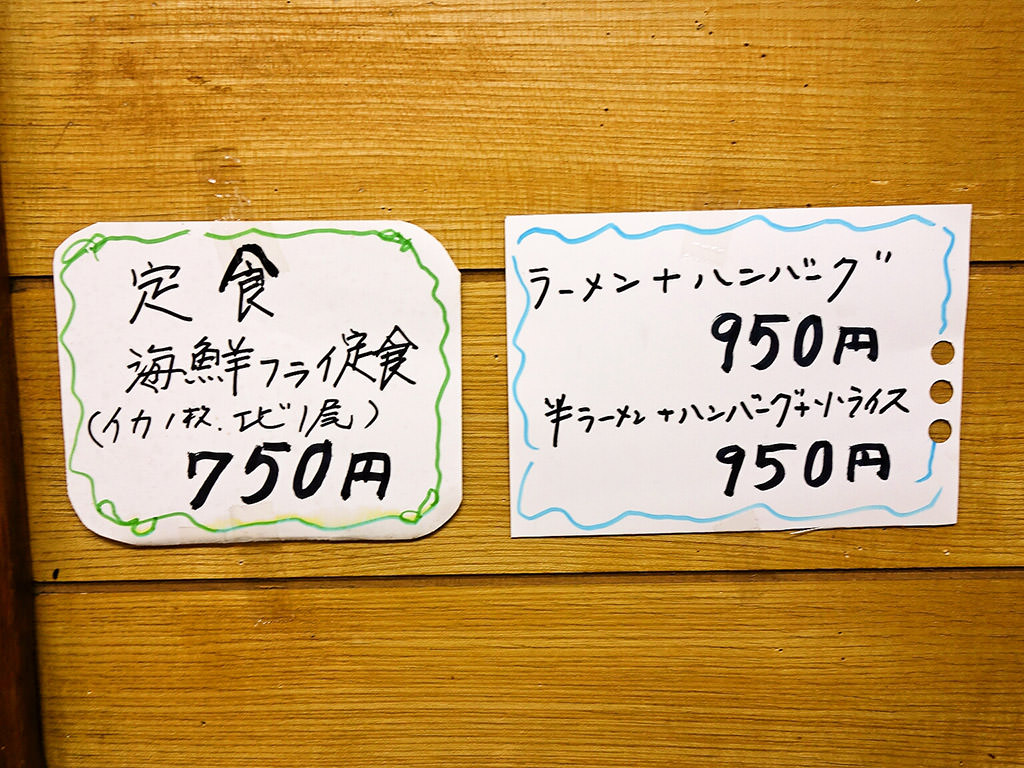 定食
海鮮フライ定食
(イカ1枚.エビ1尾)
750円
ラーメン+ハンバーグ
950円
半ラーメン+ハンバーグ+小ライス
950円